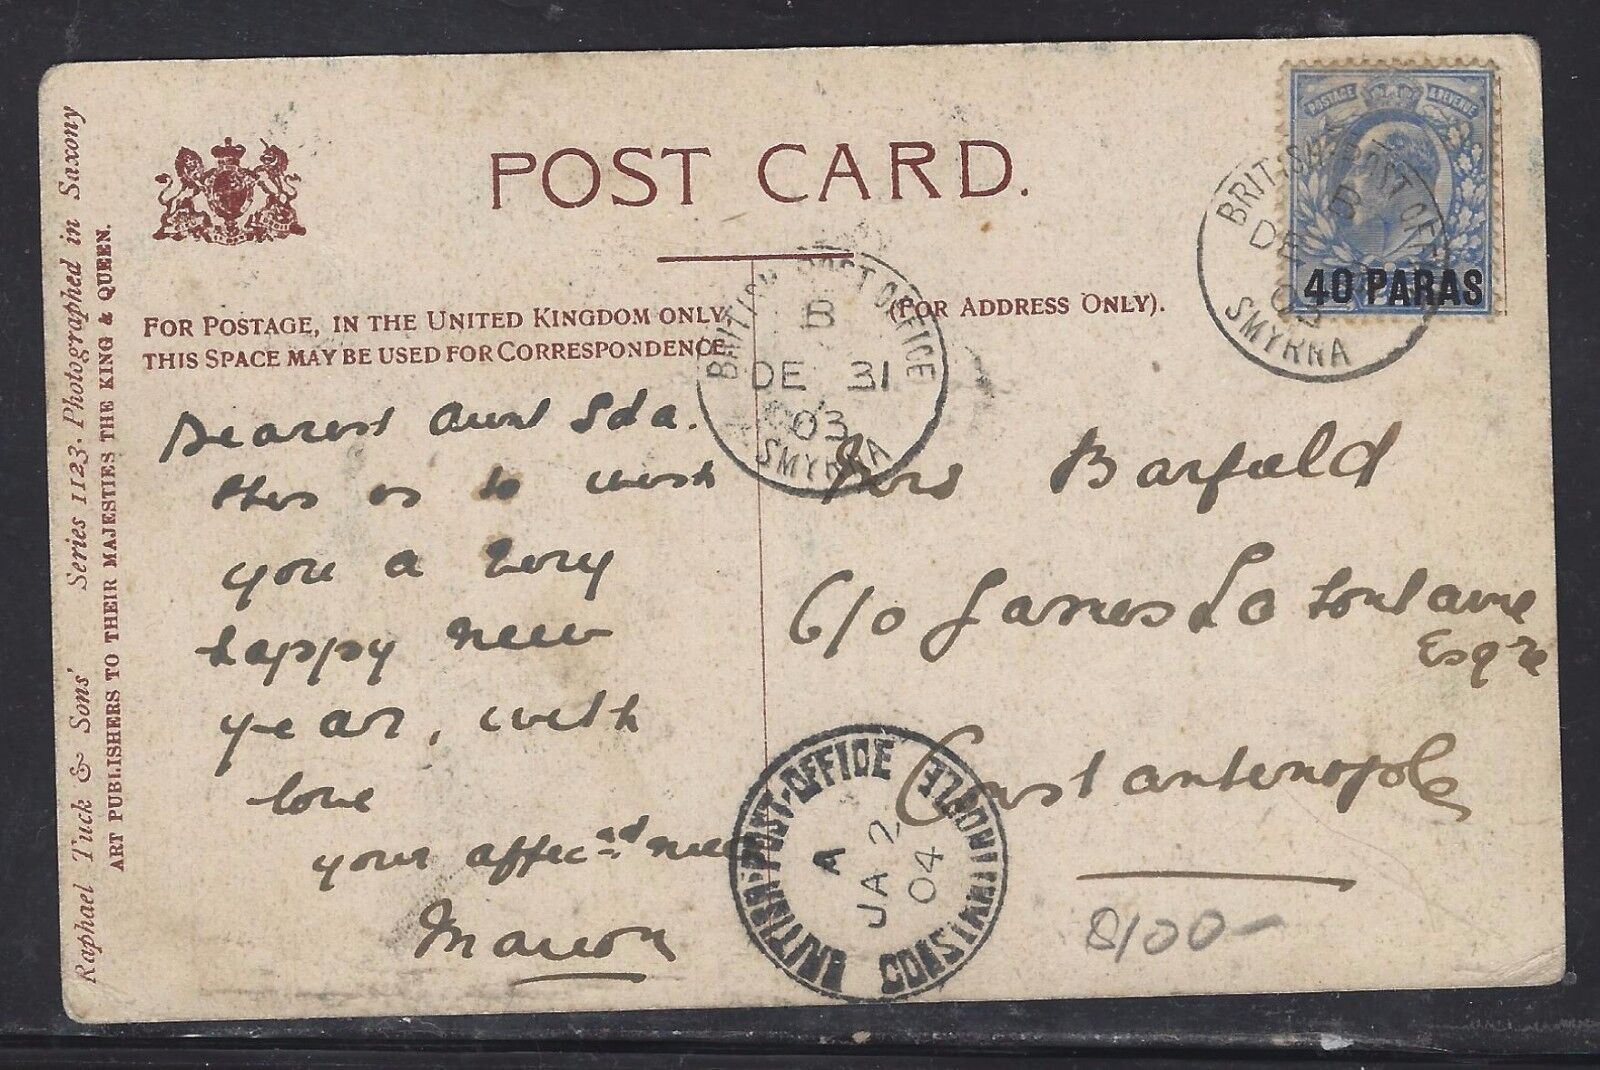 POST CARD.
FOR POSTAGE, IN THE UNITED KINGDOM ONLY,
THIS SPACE MAY BE USED FOR CORRESPONDENCE
(FOR ADDRESS ONLY).
Raphael Tuck & Sons' Series 1123. Photographed in Saxony
ART PUBLISHERS TO THEIR MAJESTIES THE KING & QUEEN.
POSTAGE & REVENUE
40 PARAS
BRITISH POST OFFICE
B
DE
03
SMYRNA
BRITISH POST OFFICE
B
DE 31
03
SMYRNA
Dearest Aunt Ida.
this is to wish
you a very
happy new
year, with
love
your affec
Marion
Mrs Barfield
C/o James La Fontaine
Esqre
Constantinople
BRITISH-POST-OFFICE
A
JA 2
04
CONSTANTINOPLE
8/00-